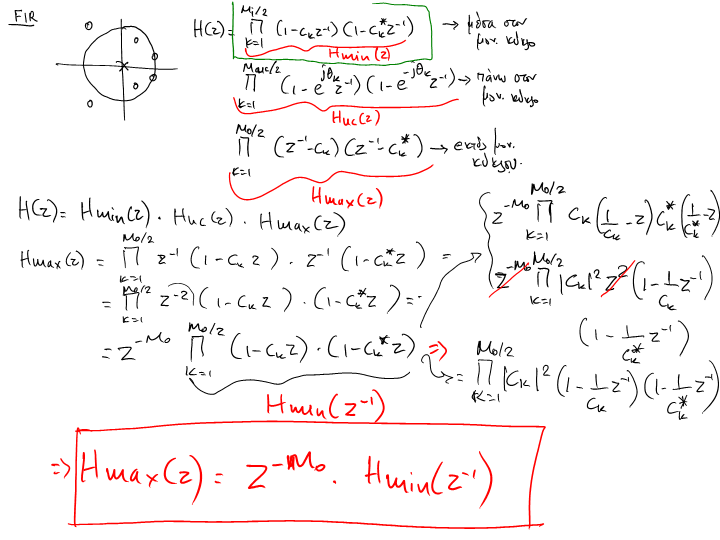 FIR
H(z) = ∏_{k=1}^{Mi/2} (1-c_k z^{-1})(1-c_k^* z^{-1}) → μέσα στον μον. κύκλο
Hmin(z)
∏_{k=1}^{Muc/2} (1-e^{jθ_k} z^{-1})(1-e^{-jθ_k} z^{-1}) → πάνω στον μον. κύκλο
Huc(z)
∏_{k=1}^{Mo/2} (z^{-1}-c_k)(z^{-1}-c_k^*) → εκτός μον. κύκλου.
Hmax(z)
H(z) = Hmin(z) · Huc(z) · Hmax(z)
Hmax(z) = ∏_{k=1}^{Mo/2} z^{-1}(1-c_k z) · z^{-1}(1-c_k^* z) =
= ∏_{k=1}^{Mo/2} z^{-2}(1-c_k z) · (1-c_k^* z) =
= z^{-Mo} ∏_{k=1}^{Mo/2} (1-c_k z) · (1-c_k^* z) ⇒
Hmin(z^{-1})
z^{-Mo} ∏_{k=1}^{Mo/2} c_k (1/c_k - z) c_k^* (1/c_k^* - z)
z^{-Mo} ∏_{k=1}^{Mo/2} |c_k|^2 z^2 (1 - 1/c_k z^{-1})
(1 - 1/c_k^* z^{-1})
= ∏_{k=1}^{Mo/2} |c_k|^2 (1 - 1/c_k z^{-1})(1 - 1/c_k^* z^{-1})
⇒ Hmax(z) = z^{-Mo} · Hmin(z^{-1})